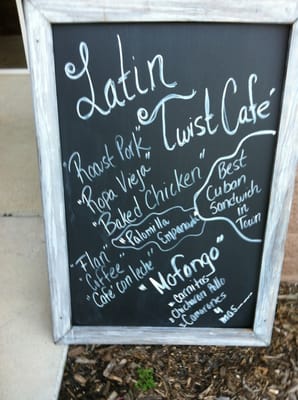 Latin
Twist Café
"Roast Pork"
"Ropa Vieja"
"Baked Chicken"
"Palomilla
Empanada"
Best
Cuban
Sandwich
in
Town
"Flan"
"Coffee"
"Café con leche"
"Mofongo"
"Carnitas
"Chicharon Pollo
"Camarones
y
mas